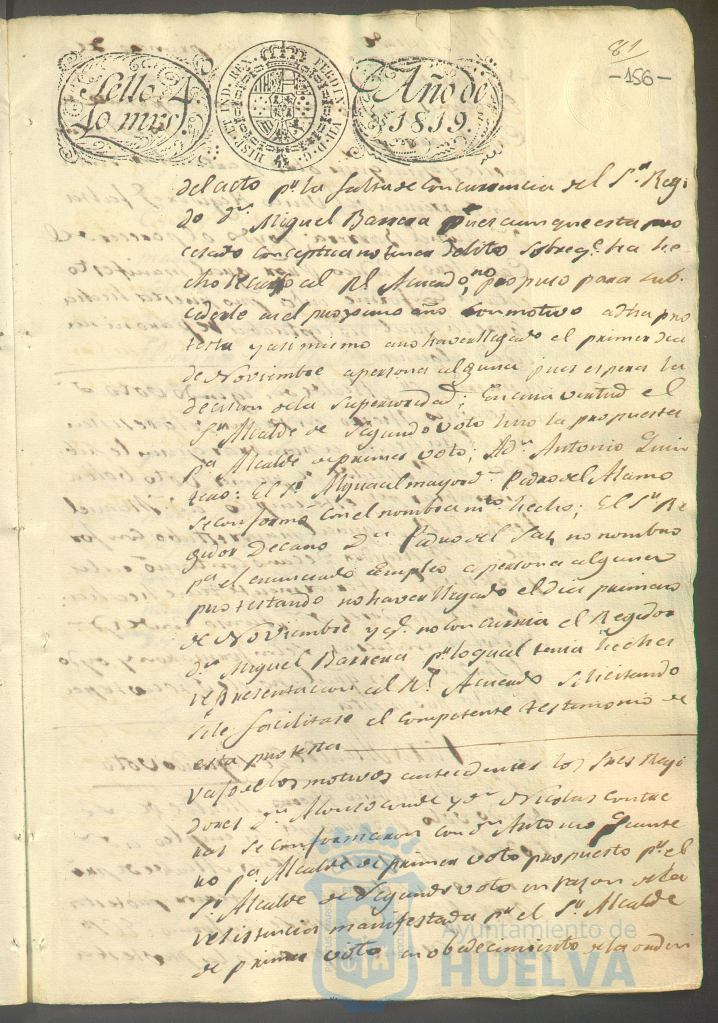 81
-156-
Sello 4º
40 mrs
HISP. ET IND. REX FERDIN. VII. D. G.
Año de
1819.
del acto pr. la falta de concurrencia del Sr. Regi
dor Dn. Miguel Barrera pues aunque esta pro
cesado conceptua no tener delito sobre qe. ha he
cho recurso al Rl. Acuerdo, no propuso para sub
cederle en el proximo año con motivo a dha pro
testa y asi mismo a no haver llegado el primer dia
de Noviembre a persona alguna pues espera la
decision de la Superioridad; En cuia virtud el
Sr. Alcalde de Segundo voto hizo la propuesta
pa. Alcalde de primer voto; A Dn. Antonio Quin
tero: El Sr. Alguacil mayor Dn. Pedro del Alamo
se conformó con el nombramto. hecho; El Sr. Re
gidor Decano Dn. Pedro del Saz no nombro
pa. el enunciado empleo a persona alguna
protestando no haver llegado el dia primero
de Noviembre y qe. no concurria el Regidor
Dn. Miguel Barrera pr. lo qual tenia hecha
representacion al Rl. Acuerdo solicitando
se le facilitase el competente testimonio de
esta protesta
Vajo de los motivos antecedentes los Sres. Regi
dores Dn. Alonso Conde y Dn. Nicolas Contre
ras se conformaron con Dn. Antonio Quinte
ro pa. Alcalde de primer voto propuesto pr. el
Sr. Alcalde de Segundo voto en razon de la
resistencia manifestada pr. el Sr. Alcalde
de primer voto en obedecimiento de la orden
Ayuntamiento de
HUELVA